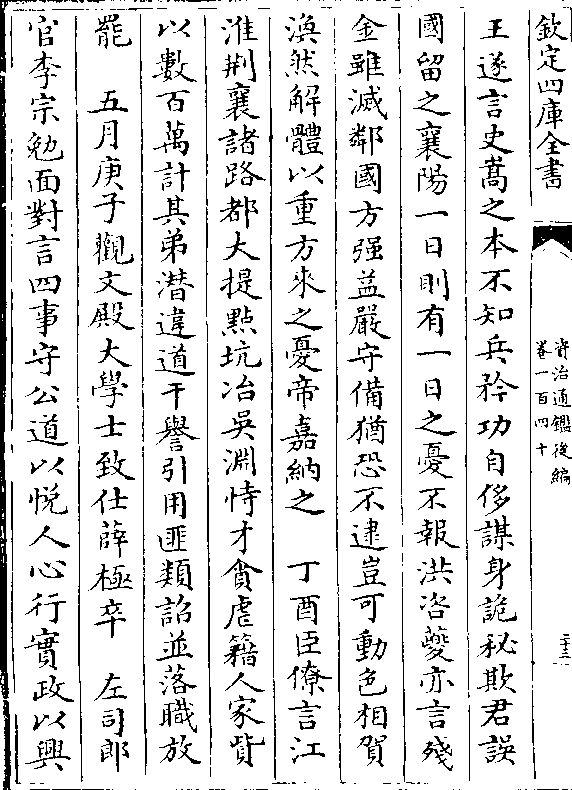 欽定四庫全書
資治通鑑後編
卷一百四十
二十三
王遂言史嵩之本不知兵矜功自侈謀身詭秘欺君誤
國留之襄陽一日則有一日之憂不報洪咨夔亦言殘
金雖滅鄰國方强益嚴守備猶恐不逮豈可動色相賀
渙然解體以重方來之憂帝嘉納之　丁酉臣僚言江
淮荆襄諸路都大提點坑冶吳淵恃才貪虐籍人家貲
以數百萬計其弟潛違道干譽引用匪類詔並落職放
罷　五月庚子觀文殿大學士致仕薛極卒　左司郎
官李宗勉面對言四事守公道以悅人心行實政以興